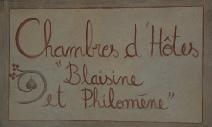 Chambres d'Hôtes
"Blaisine
et Philomène"